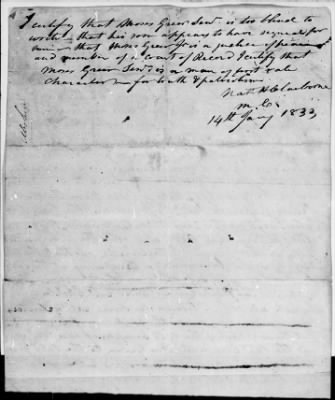 I certify that Moses Greer Senr. is too blind to
write – that his son appears to have signed for
him – that Moses Greer Jr is a justice of peace
and member of a court of Record I certify that
Moses Greer Senr is a man of first rate
character – for truth & patriotism
Nat. H Claiborne
M. C.
14th Jany 1833